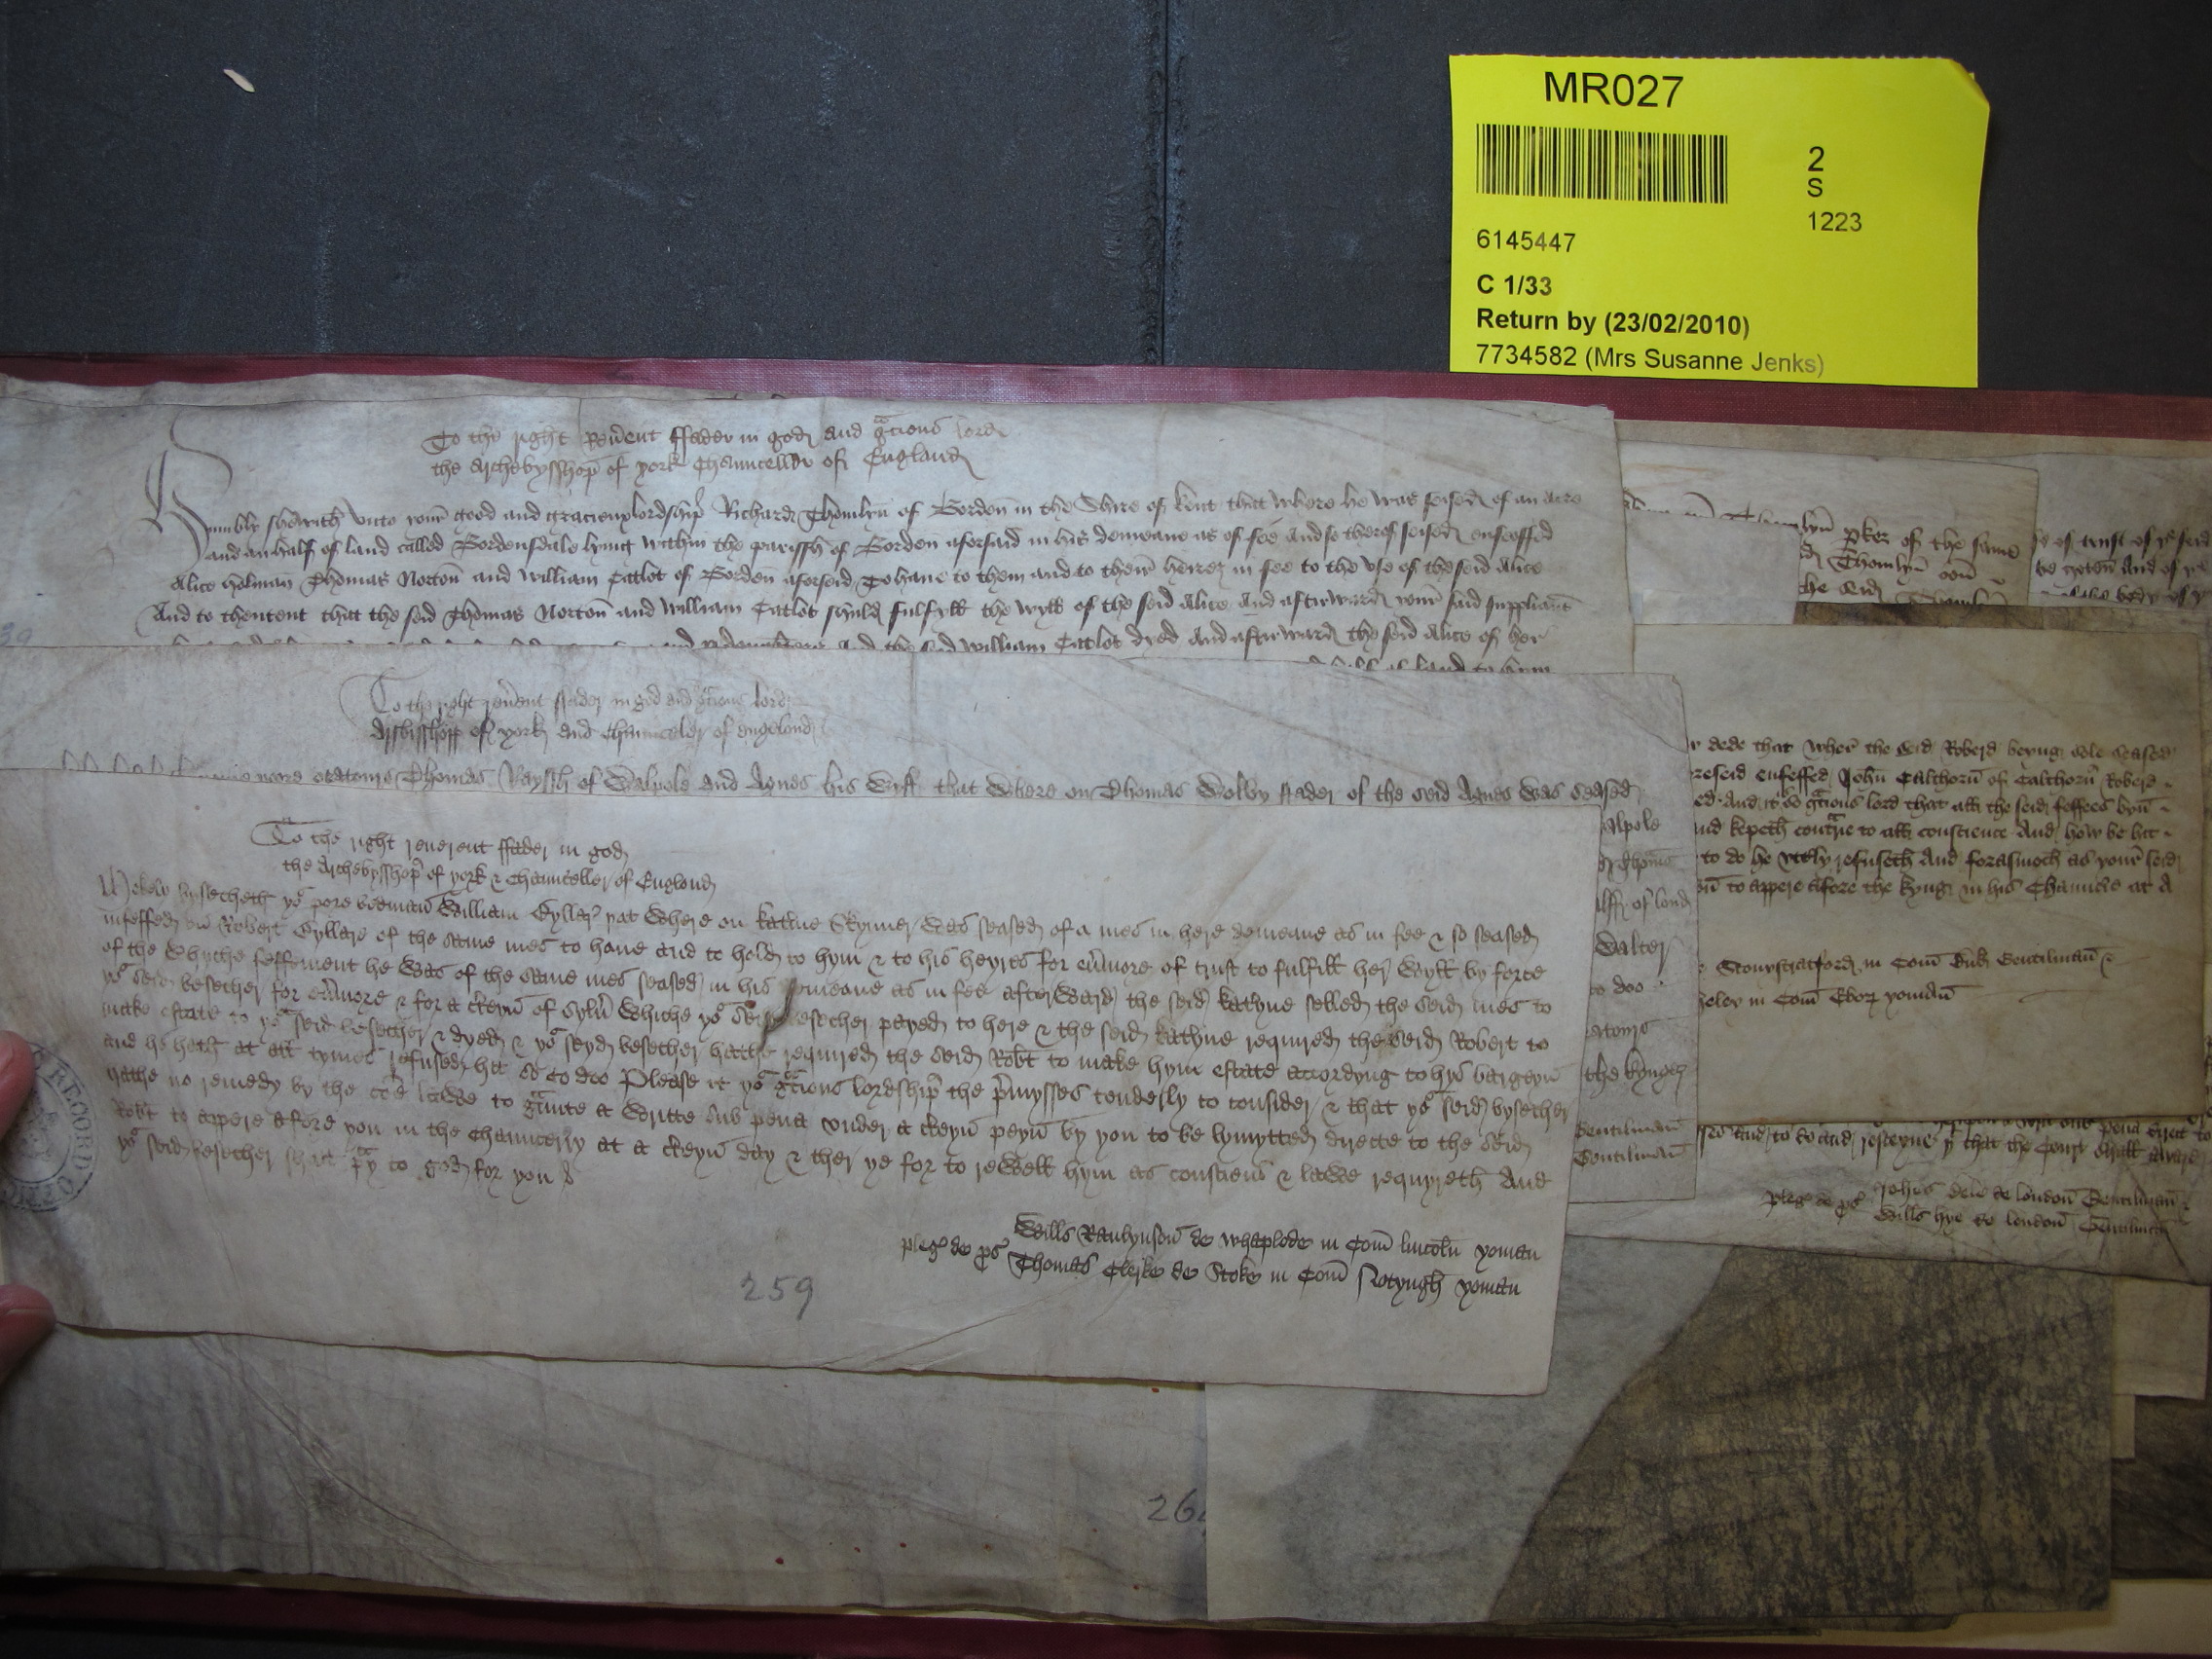 MR027
2
S
1223
6145447
C 1/33
Return by (23/02/2010)
7734582 (Mrs Susanne Jenks)
To the right Reu̅ent ffader in god and gacious lord
the Archebysshop̅ of york Chauncellor of England
Humbly shewith vnto your̅ good and gracioux lordship Richard Thomlyn of Bordeu̅ in the Shire of kent that where he was seised of an acre
and an half of land called Bordensdale lying within the parissh of Borden aforsaid in his demeane as of fee And so therof seised enfeoffed
Alice holman Thomas Nortou̅ and william Catlot of Bordeu̅ aforseid To haue to them and to their̅ heirez in fee to the vse of the seid Alice
And to thentent that the seid Thomas Nortou̅ and william Catlot shuld fulfyll the wyll of the seid Alice And afterward your̅ said suppliant
and the seid william Catlot dyed And afterward the seid Alice of her
of land to hym
To the right reu̅ent ffader in god and gacious lord
Archbisshopp of york and chaunceler of england
oratours Thomas Rayssh of Walpole and Agnes his wyff that where on Thomas Wolby ffader of the seid Agnes was seased
To the right reuerent ffader in god
the Archebysshop̅ of york & Chaunceller of England
Mekely bysecheth yor pore bedman William Gyllar þat where on katine Skynner was seased of a mes in here demeane as in fee & so seased
infeffed on̅ Robert Gyllare of the same mes to haue and to hold to hym & to his heyres for eu̅more of trust to fulfill her wyll by force
of the whyche feffement he was of the same mes seased in his demeane as in fee afterward the seid katyne selled the seid mes to
yor seid besecher for eu̅more & for a c̅teyn̅ of sylu̅ whiche yor seid besecher payed to here & the seid katyne required the seid Robert to
make estate to yor seid besecher & dyed & yor seyd besecher hathe required the seid Rob̅t to make hym estate accordyng to hys bargeyn̅
and he hath at all tymes refused hit so to doo Please it yor gacious lordship̅ the p̅mysses tenderly to consider & that yor seid bysecher
hathe no remedy by the co̅e lawe to gaunte a writte sub pena vnder a c̅teyn̅ peyn̅ by you to be lymytted directe to the seid
Rob̅t to appere afore you in the Chauncerry at a c̅teyn̅ day & ther ye for to rewell hym as consciens & lawe requyreth And
yor seid besecher shall pay to god for you
Wills Raulynson̅ de Whaplode in Com̅ lincoln̅ yoman
pleg de ps Thomas Clerke de Stoke in Com̅ Notyngh̅ yoman
259
26
Thomlyn̅ pker of the same
Thomlyn̅
the seid Thomlyn̅
of trust of þe seid
be goten̅ And of þe
body of
dede that wher̅ the seid Roberd beyng sole seased
reseid enfeffed John̅ Calthorn̅ of Calthorn̅ Roberd
ed And it so gacious lord that all the seid feffees byn̅
and kepeth contrarie to all conscience And how be hit
to do he vtt̅ly refuseth And forasmoch as your̅ seid
to appere afore the kyng in his Chauncle at A
Stonystratford in Com̅ Gentilman̅
in Com̅ Ebor yoman̅
alpole
Thomas
of lond
Walter
to doo
atours
the kynges
Gentilman̅
Gentilman̅
that the Court shall award
pleg de ps Johes de london̅ Gentilman̅
Wills hye de london̅ Gentilman